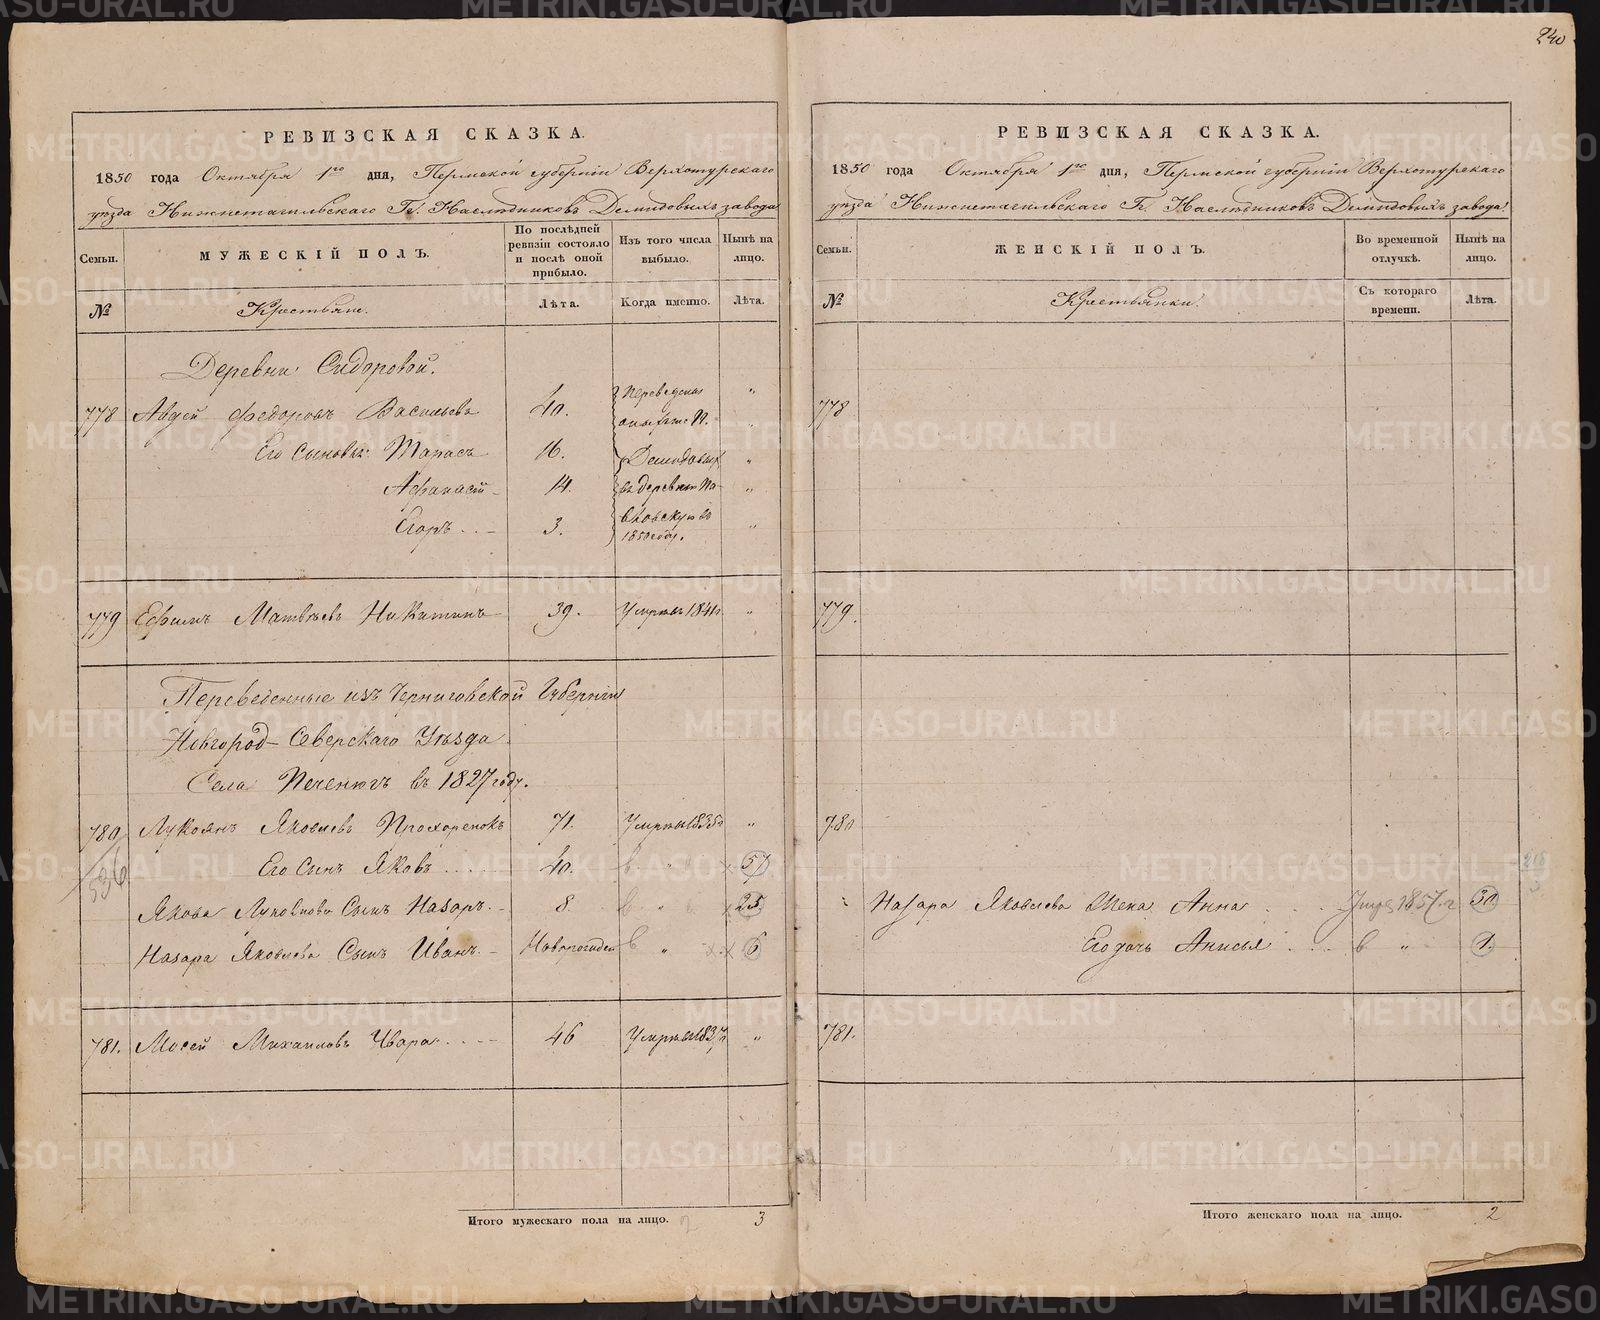 240
РЕВИЗСКАЯ СКАЗКА.
1850 года Октября 1го дня, Пермской губерніи Верхотурскаго
уѣзда Нижнетагильскаго Гг. Наслѣдниковъ Демидовыхъ завода
Семьи.
МУЖЕСКІЙ ПОЛЪ.
По послѣдней ревизіи состояло и послѣ оной прибыло.
Изъ того числа выбыло.
Нынѣ на лицо.
№
Крестьяне.
Лѣта.
Когда именно.
Лѣта.
Деревни Сидоровой.
778 Авдей Федоровъ Васильевъ 40. "
Его Сыновья: Тарасъ 16. Демидовыхъ "
Афанасій 14. въ деревню Па- "
Егоръ 3. въ 1850 году. "
779 Ефимъ Матвѣевъ Никитинъ 39. Умръ въ 1841г. "
Переведенные изъ Черниговской Губерніи
Новгород-Северскаго Уѣзда
Села Печенюгъ въ 1827 году.
780 Лукоянъ Яковлевъ Прохоренокъ 71. Умръ въ 1835г "
536 Его Сынъ Яковъ 40. " 57
Якова Лукоянова Сынъ Назаръ 8 " 25
Назара Яковлева Сынъ Иванъ Новорожден " 6
781. Мосей Михаиловъ Чвара 46 Умръ въ 1837г "
Итого мужескаго пола на лицо. 2 3
РЕВИЗСКАЯ СКАЗКА.
1850 года Октября 1го дня, Пермской губерніи Верхотурскаго
уѣзда Нижнетагильскаго Гг. Наслѣдниковъ Демидовыхъ завода
Семьи.
ЖЕНСКІЙ ПОЛЪ.
Во временной отлучкѣ.
Нынѣ на лицо.
№
Крестьянки.
Съ котораго времени.
Лѣта.
778
779.
780
" Назара Яковлева Жена Анна 1857 г 30
Его дочь Анисья " 1
781.
Итого женскаго пола на лицо. 2
METRIKI.GASO-URAL.RU